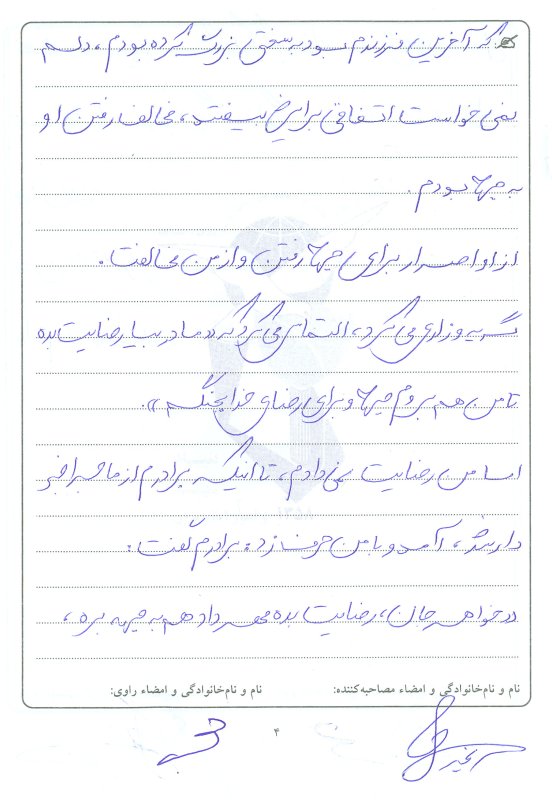 که آخرین فرزندم بود به سختی بزرگ کرده بودم، دلم
نمی خواست اتفاقی برایش بیفتد، مخالف رفتن او
به جبهه بودم.
از او اصرار برای جبهه رفتن و از من مخالفت.
گریه و زاری می کرد، التماس می کرد که «مادر بیا رضایت بده
تا من هم بروم جبهه و برای رضای خدا بجنگم».
اما من رضایت نمی دادم، تا اینکه برادرم از ماجرا خبر
دار شد، آمد و با من حرف زد. برادرم گفت:
«خواهر جان، رضایت بده محمد داد هم به جبهه بره،
نام و نام‌خانوادگی و امضاء مصاحبه‌کننده: نام و نام‌خانوادگی و امضاء راوی:
۴